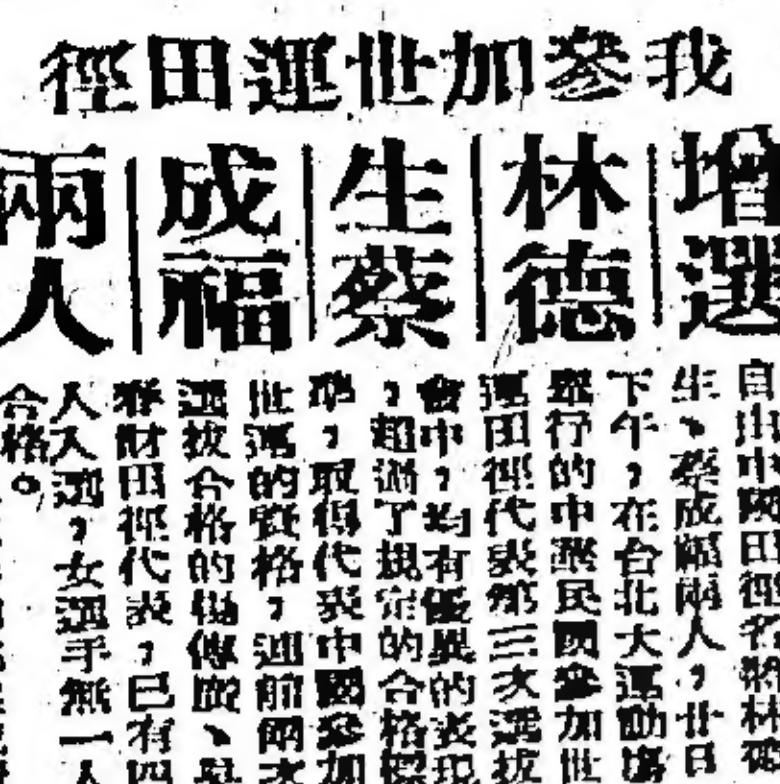 我參加世運田徑
增選
林德
生蔡
成福
兩人
自由中國田徑名將林德
生、蔡成福兩人，廿日
下午，在台北大運動場
舉行的中華民國參加世
運田徑代表第三次選拔
會中，均有優異的表現
，超過了規定的合格標
準，取得代表中國參加
世運的資格，連前兩次
選拔合格的楊傳廣、吳
春財田徑代表，已有四
人入選，女選手無一人
合格。